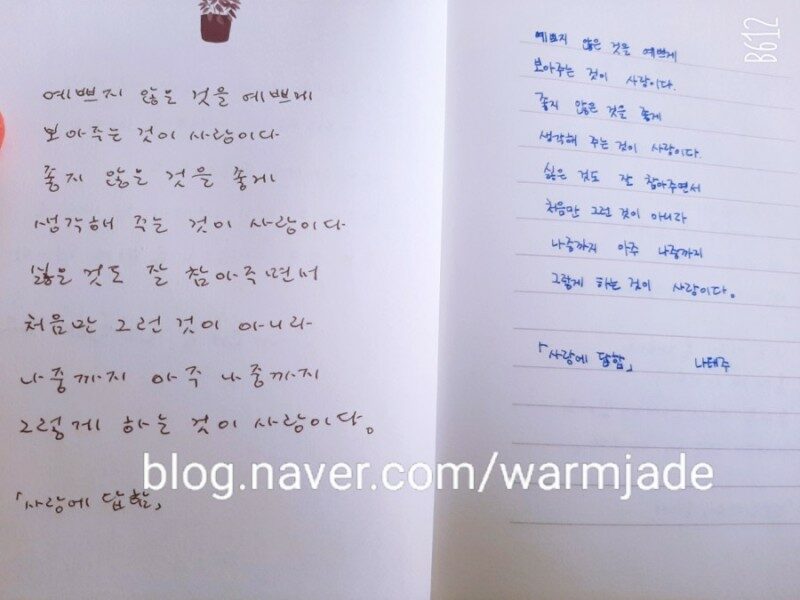 예쁘지 않은 것을 예쁘게
보아주는 것이 사랑이다
좋지 않은 것을 좋게
생각해 주는 것이 사랑이다
싫은 것도 잘 참아주면서
처음만 그런 것이 아니라
나중까지 아주 나중까지
그렇게 하는 것이 사랑이다。
「사랑에 답함」
예쁘지 않은 것을 예쁘게
보아주는 것이 사랑이다.
좋지 않은 것을 좋게
생각해 주는 것이 사랑이다.
싫은 것도 잘 참아주면서
처음만 그런 것이 아니라
나중까지 아주 나중까지
그렇게 하는 것이 사랑이다。
「사랑에 답함」 나태주
blog.naver.com/warmjade
B612